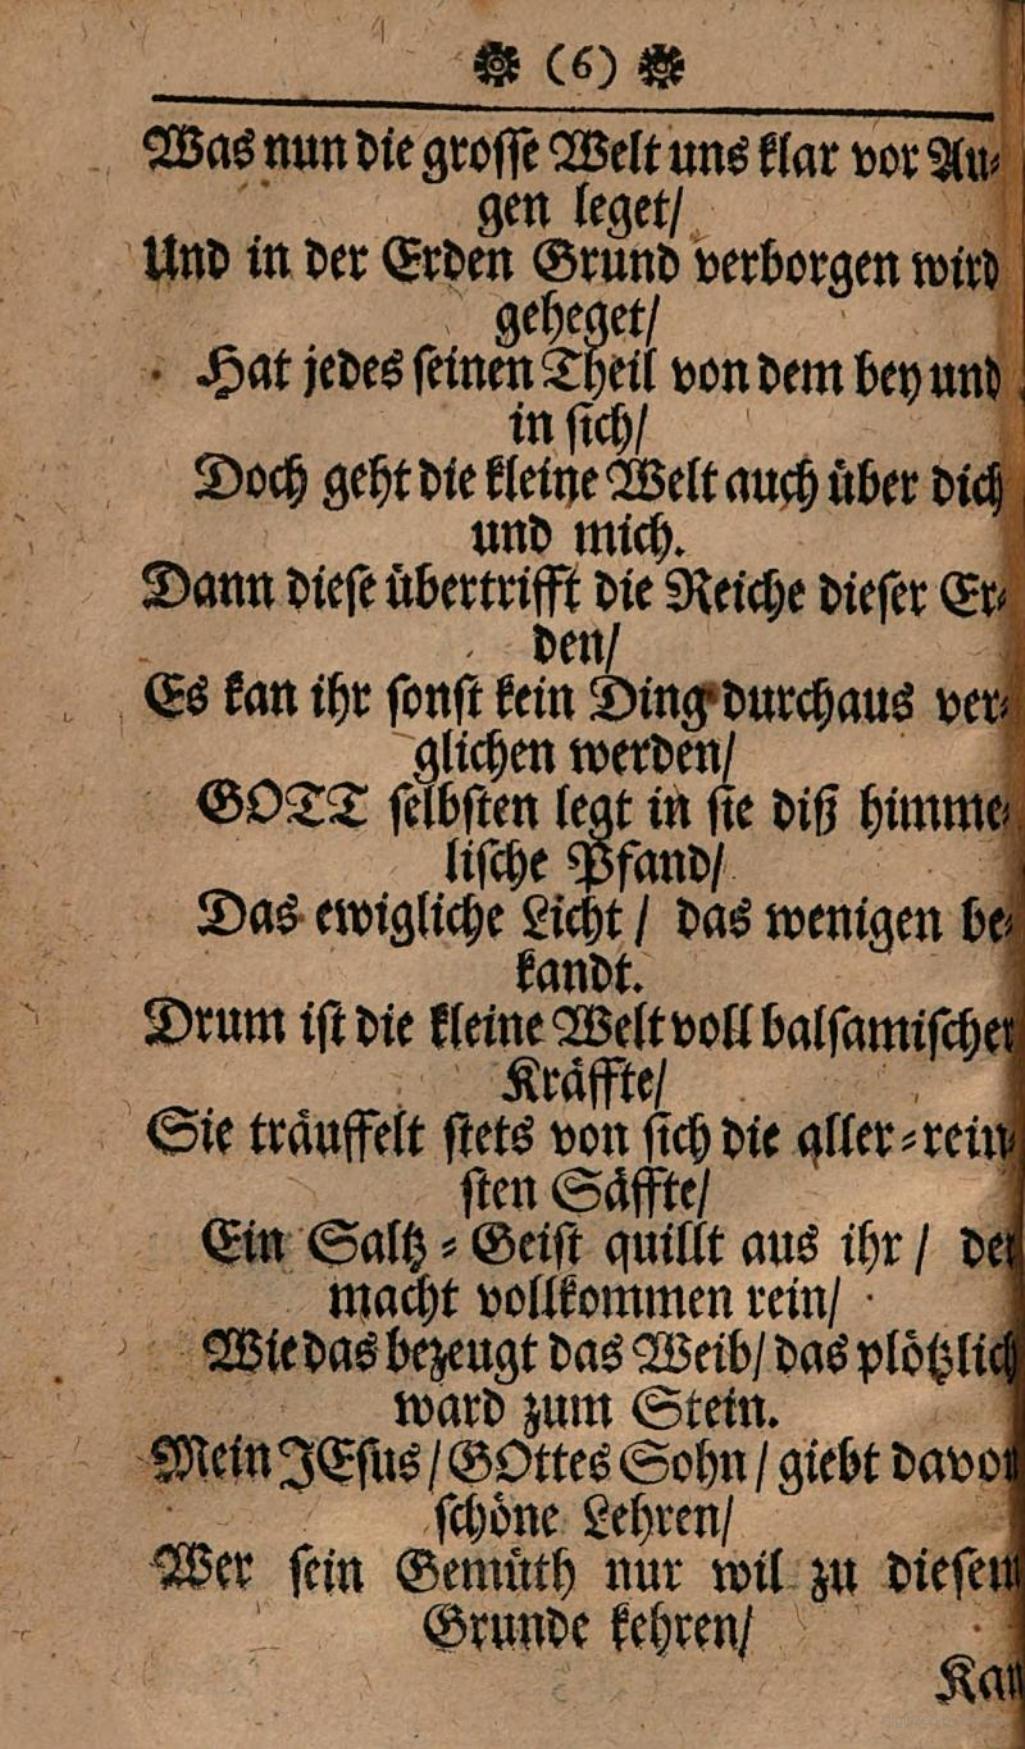 (6)
Was nun die grosse Welt uns klar vor Au-
gen leget/
Und in der Erden Grund verborgen wird
geheget/
Hat jedes seinen Theil von dem bey und
in sich/
Doch geht die kleine Welt auch über dich
und mich.
Dann diese übertrifft die Reiche dieser Er-
den/
Es kan ihr sonst kein Ding durchaus ver-
glichen werden/
GOTT selbsten legt in sie diß himme-
lische Pfand/
Das ewigliche Licht / das wenigen be-
kandt.
Drum ist die kleine Welt voll balsamischer
Kräffte/
Sie träuffelt stets von sich die aller-rein-
sten Säffte/
Ein Saltz-Geist quillt aus ihr / der
macht vollkommen rein/
Wie das bezeugt das Weib/ das plötzlich
ward zum Stein.
Mein JEsus / GOttes Sohn / giebt davon
schöne Lehren/
Wer sein Gemüth nur wil zu diesem
Grunde kehren/
Kan